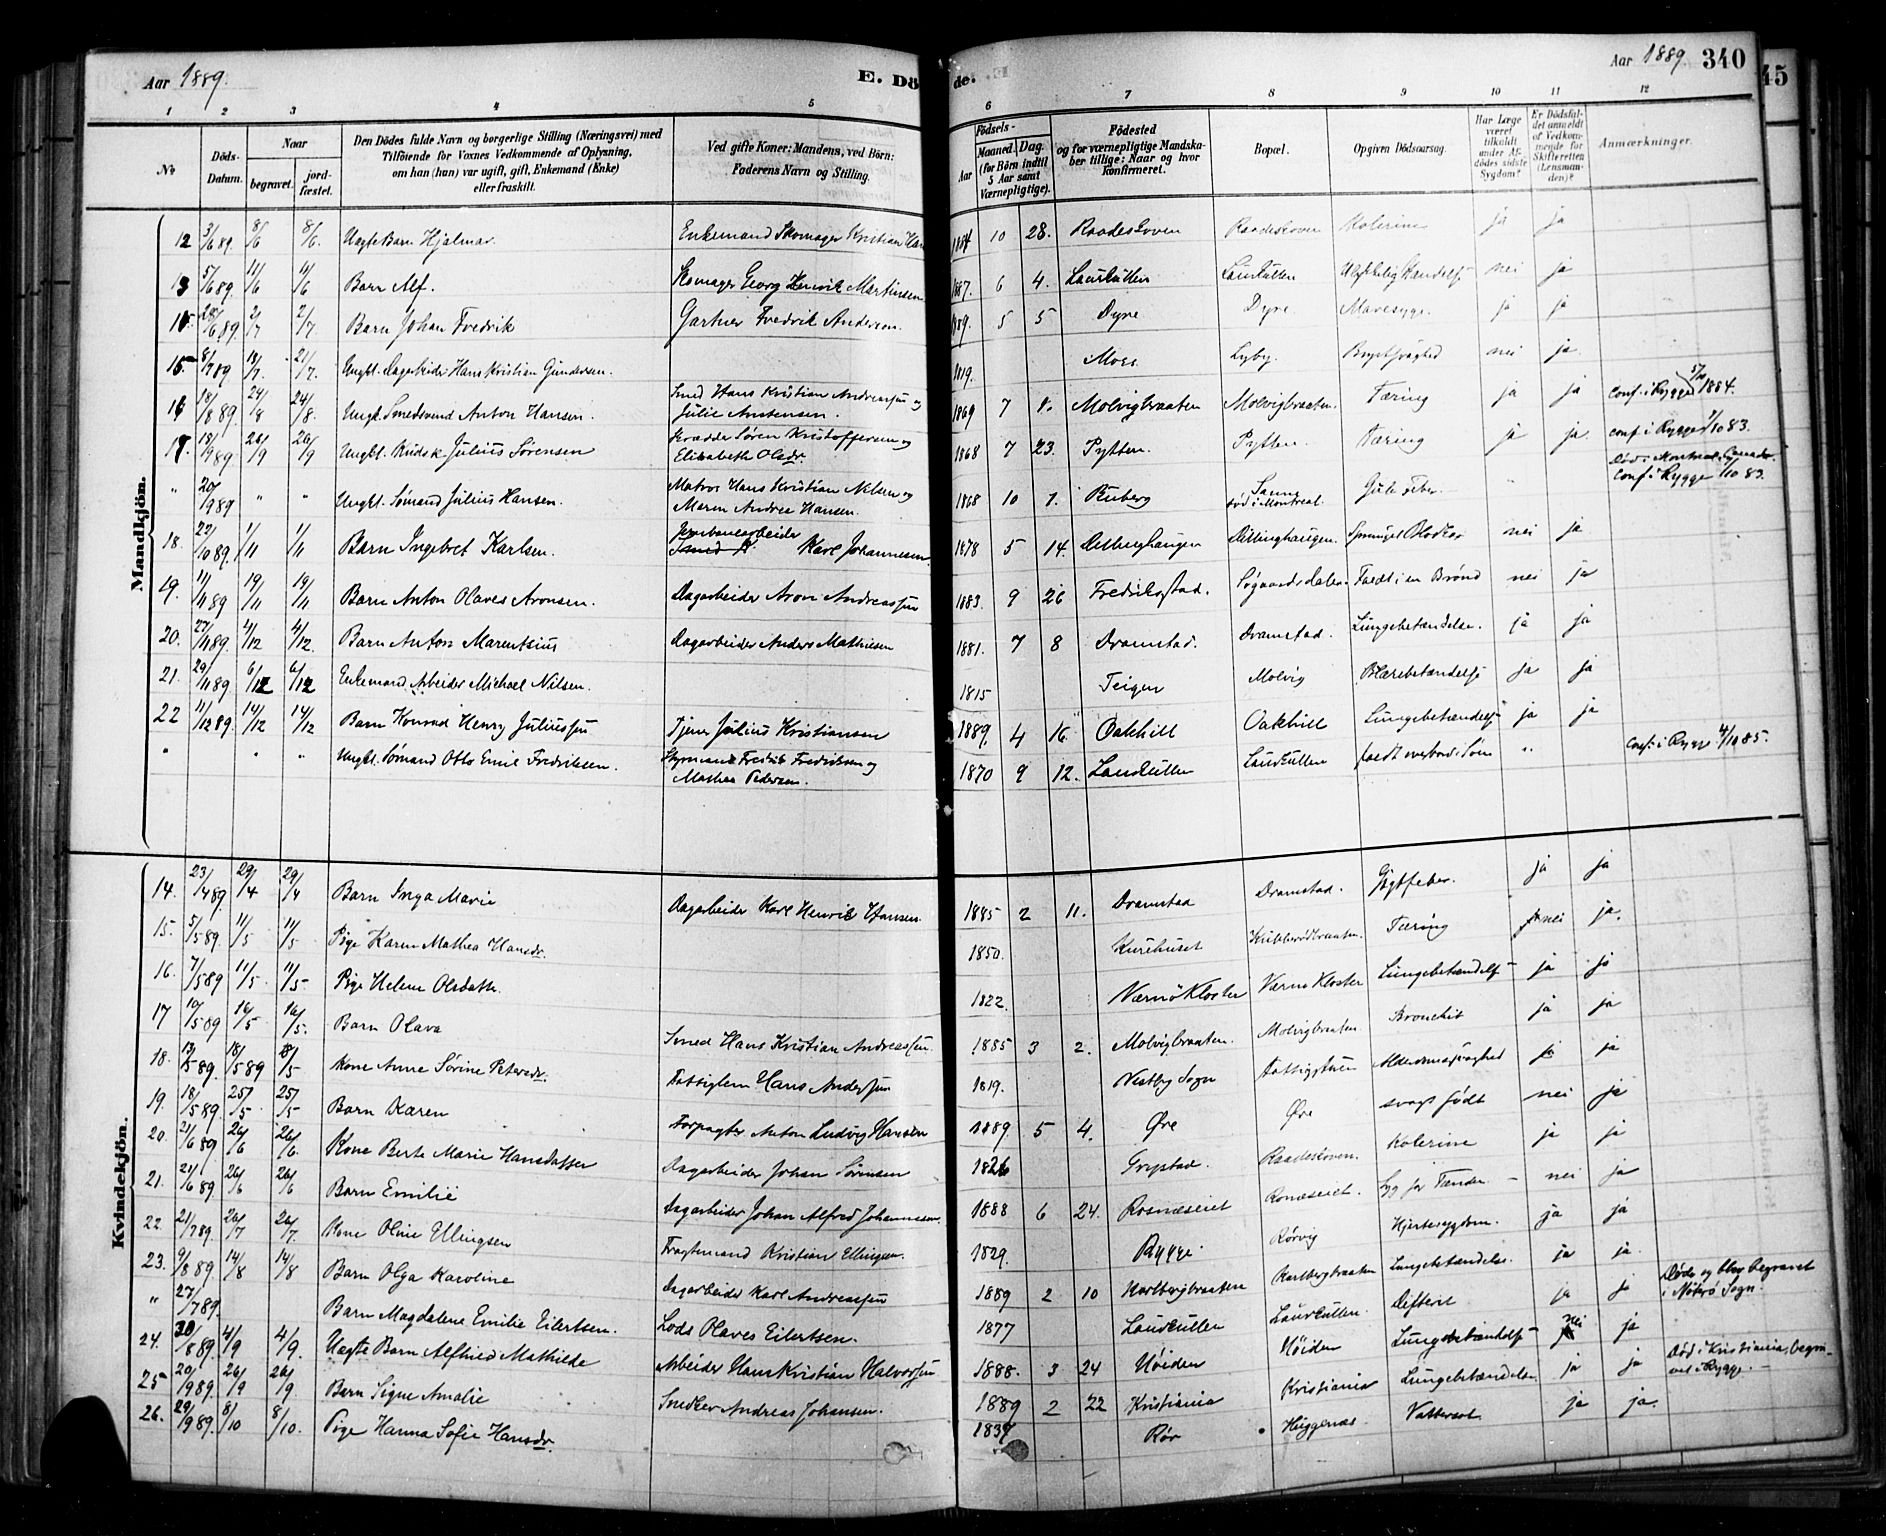 Aar 1889. E. Dö
de. Aar 1889. 340
45
1 2 3 4 5 6 7 8 9 10 11 12
No Döds-Datum. Naar begravet. jord-fæstet. Den Dödes fulde Navn og borgerlige Stilling (Næringsvei) med Tilföiende for Voxnes Vedkommende af Oplysning, om han (hun) var ugift, gift, Enkemand (Enke) eller fraskilt. Ved gifte Koner: Mandens, ved Börn: Faderens Navn og Stilling. Födsels- Aar Maaned. Dag. (for Börn indtil 5 Aar samt Værnepligtige). Födested og for værnepligtige Mandskaber tillige: Naar og hvor konfirmeret. Bopæl. Opgiven Dödsaarsag. Har Læge været tilkaldt under Afdödes sidste Sygdom? Er Dödsfaldet anmeldt af Vedkommende for Skifteretten (Lensmanden)? Anmærkninger.
Mandkjön.
12 3/6 89. 8/6 8/6. Uægte Barn Hjalmar. Enkemand Skomager Kristian Han 1884 10 28. Raadeskoven Raadeskoven Kolerine ja ja
13 5/6 89. 11/6 11/6 Barn Alf. Skomager Georg Henrik Martinsen 1887. 6 4. Laurkullen Laurkullen nei ja
15. 28/6 89. 2/7 2/7 Barn Johan Fredrik Gartner Fredrik Andersen. 1889. 5 5 Dyre Dyre. Mavesyge. ja ja
15. 8/7 89. 13/7. 21/7. Ungkl. Dagarbeider Hans Kristian Gundersen. 1819. Moss. Lyby. Brystsvaghed nei ja
16 18/8 89. 24/8 24/8. Ungkl. Smedsvend Anton Hansen. Smed Hans Kristian Andreassen og Julie Amtensen. 1869 7 8. Molvigbraaten Molvigbraaten. Tæring ja ja conf. i Rygge 5/10 1884.
17. 18/9 89 26/9 26/9 Ungkl. Kudsk Julius Sørensen Skrædder Søren Kristoffersen og Elisabeth Olsdr. 1868 7 23. Pytten. Pytten. Tæring ja ja. conf. i Rygge 7/10 83.
" 20/9 89 " " Ungkl. Sømand Julius Hansen. Matros Hans Kristian Nilsen og Maren Andrea Hansen. 1868 10 1. Ruberg Samme død i Montreal. Gule Feber. " Død i Montreal, Canada. Conf. i Rygge 7/10 83.
18. 22/10 89. 1/11 1/11 Barn Ingebret Karlsen. Jernbanearbeider Karl Johannesen 1878 5 14. Dillinghaugen Dillinghaugen. nei ja
19. 11/11 89 19/11 19/11 Barn Anton Olaves Aronsen. Dagarbeider Aron Andreassen 1883. 9 26 Fredrikstad. Søgaardsdalen. Faldt i en Brønd nei ja
20. 27/11 89. 4/12 4/12. Barn Anton Marentsius Dagarbeider Anders Mathiesen 1881. 7 8 Dramstad. Dramstad. Lungebetændelse. ja ja
21. 29/11 89 6/12 6/12 Enkemand Arbeider Michael Nilsen. 1815 Teigen Molvig Blærebetændelse ja ja
22 11/12 89. 14/12 14/12 Barn Konrad Henry Juliussen Tjener Julius Kristiansen 1889. 4 16. Oakhill Oakhill Lungebetændelse ja ja
" " " Ungkl. Sømand Otto Emil Fredriksen. Styrmand Fredrik Fredriksen og Mathea Pedersen. 1870 9 12. Laurkullen Laurkullen faldt overbord i Søen " Conf. i Rygge 4/10 85.
Kvindekjön.
14. 23/4 89. 29/4 29/4 Barn Inga Marie Dagarbeider Karl Henrik Hansen. 1885 2 11. Dramstad Dramstad. Gigtfeber. ja ja
15. 5/5 89. 11/5 11/5 Pige Karen Mathea Hansdr. 1850. Kurehuset Kubberødbraaten. Tæring nei ja.
16. 7/5 89 11/5. 11/5 Pige Helene Olsdatter. 1822. Værnø Kloster Værnø Kloster Lungebetændelse ja ja
17 10/5 89 16/5 16/5. Barn Olava Smed Hans Kristian Andreassen. 1885 3 2. Molvigbraaten. Molvigbraaten Bronchit ja ja
18. 13/5 89. 18/5 89 18/5 Kone Anne Sørine Petersdr. Fattiglem Hans Andersen 1819. Vestby Sogn Fattigstuen Alderdomssvaghed ja ja
19. 18/5 89. 25/5. 25/5 Barn Karen Forpagter Anton Ludvig Hansen 1889 5 4. Øre Øre svagt født nei ja
20. 21/6 89 26/6 26/6. Kone Berte Marie Hansdatter Dagarbeider Johan Sørensen 1826 Grystad. Raadeskoven. Kolerine ja ja
21. 21/6 89. 26/6 26/6 Barn Emilie Dagarbeider Johan Alfred Johannesen. 1888 6 24 Rosnæseiet Rosnæseiet. Syg for Tænder nei ja
22. 21/7 89. 26/7 26/7. Kone Oline Ellingsen Fragtemand Kristian Ellingsen. 1829. Rygge. Rørvig Hjertesygdom. ja ja
23. 9/8 89 14/8 14/8 Barn Olga Karoline Dagarbeider Karl Andreassen 1889 2 10 Karlbergbraaten Karlbergbraaten Lungebetændelse. ja ja
" 27/7 89. Barn Magdalene Emilie Eilertsen. Lods Olaves Eilertsen. 1877 Laurkullen Laurkullen. Difterit ja ja Døde og blev begravet i Nøtterø Sogn.
24. 30/8 89. 4/9 4/9. Uægte Barn Alfhild Mathilde Arbeider Hans Kristian Halvorsen 1888. 3 24 Høiden Høiden Lungebetændelse nei ja
25 20/9 89. 26/9 26/9. Barn Signe Amalie Snedker Andreas Johansen. 1889 2 22 Kristiania Kristiania Lungebetændelse ja ja Død i Kristiania, begravet i Rygge.
26. 29/9 89. 8/10 8/10. Pige Hanna Sofie Hansdr. 1837 Rør Huggenæs Vattersot. ja ja.